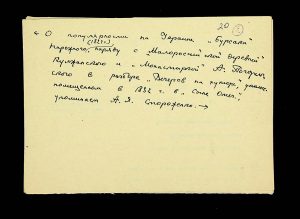 20
← О популярности на Украине „Бурсака"
(1824 г.)
Нарежного, наряду с „Малороссийской деревней"
Кулжинского и „Монастыркой" А. Погорель-
ского в разборе „Вечеров на хуторе",
помещенном в 1832 г. в „Сыне Отеч.",
упоминает А. Я. Стороженко. →